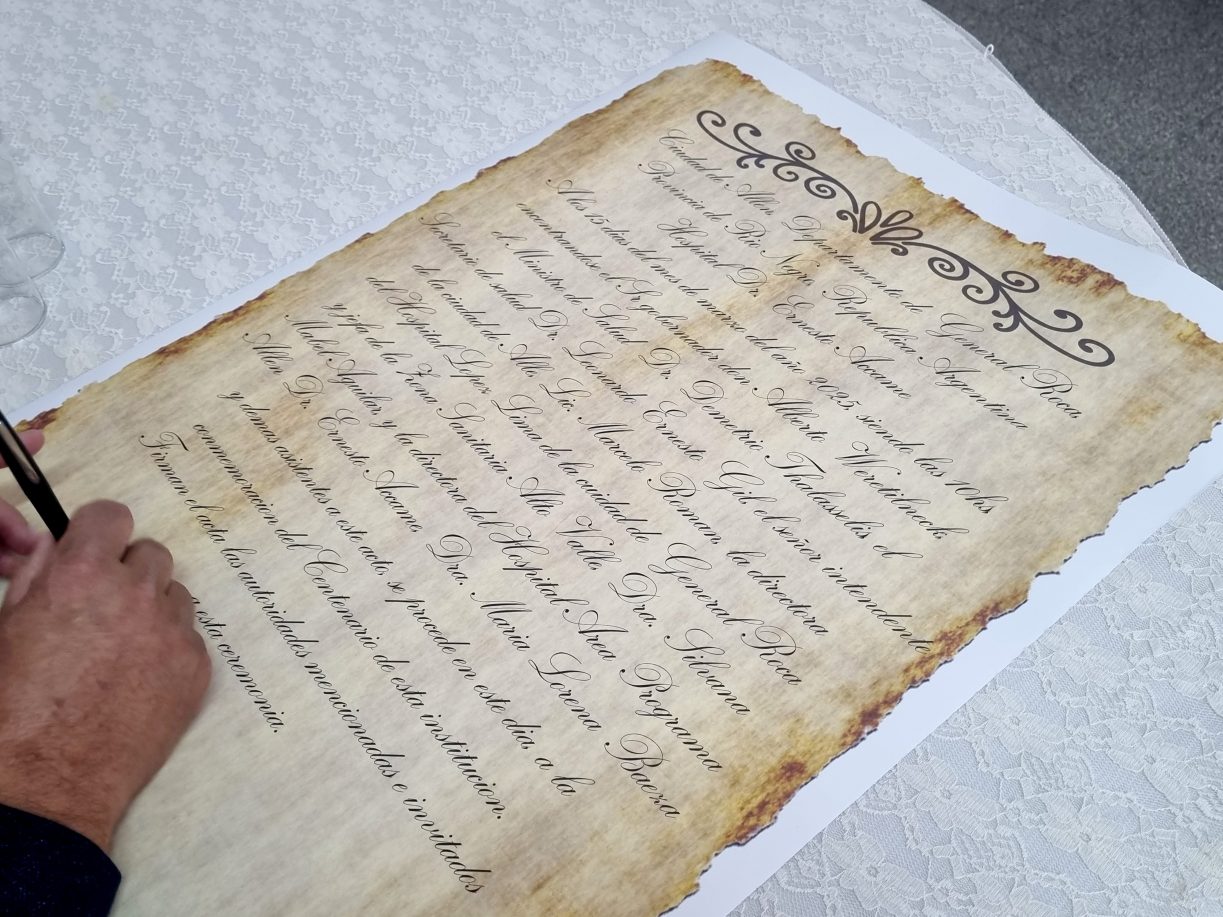 Ciudad de Allen, Departamento de General Roca,
Provincia de Río Negro, República Argentina
Hospital Dr. Ernesto Accame
A los 15 días del mes de marzo del año 2025, siendo las 10hs
encontrandose el Sr gobernador don Alberto Weretilneck,
el Ministro de Salud Dr. Demetrio Thalasselis, el
Secretario de salud Dr. Leonardo Ernesto Gil, el señor intendente
de la ciudad de Allen Lic. Marcelo Roman, la directora
del Hospital Lopez Lima de la cuidad de General Roca
y jefa de la Zona Sanitaria Alto Valle, Dra. Silvana
Mabel Aguilar, y la directora del Hospital Area Programa
Allen Dr. Ernesto Accame, Dra. Maria Lorena Baeza
y demas asistentes a este acto, se procede en este dia, a la
conmemoracion del Centenario de esta institucion.
Firman el acta las autoridades mencionadas e invitados
esta ceremonia.